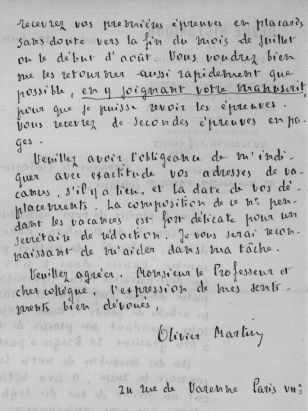 recevrez vos premières épreuves en placards
sans doute vers la fin du mois de juillet
ou le début d'août. Vous voudrez bien
me les retourner aussi rapidement que
possible, en y joignant votre manuscrit,
pour que je puisse revoir les épreuves.
Vous recevrez de secondes épreuves en pa-
ges.
Veuillez avoir l'obligeance de m'indi-
quer avec exactitude vos adresses de va-
cances, s'il y a lieu, et la date de vos dé-
placements. La composition de ce no. pen-
dant les vacances est fort délicate pour un
secrétaire de rédaction. Je vous serai recon-
naissant de m'aider dans ma tâche.
Veuillez agréer, Monsieur le Professeur et
cher collègue, l'expression de mes senti-
ments bien dévoués.
Olivier Martin
24 rue de Varenne Paris VIIe